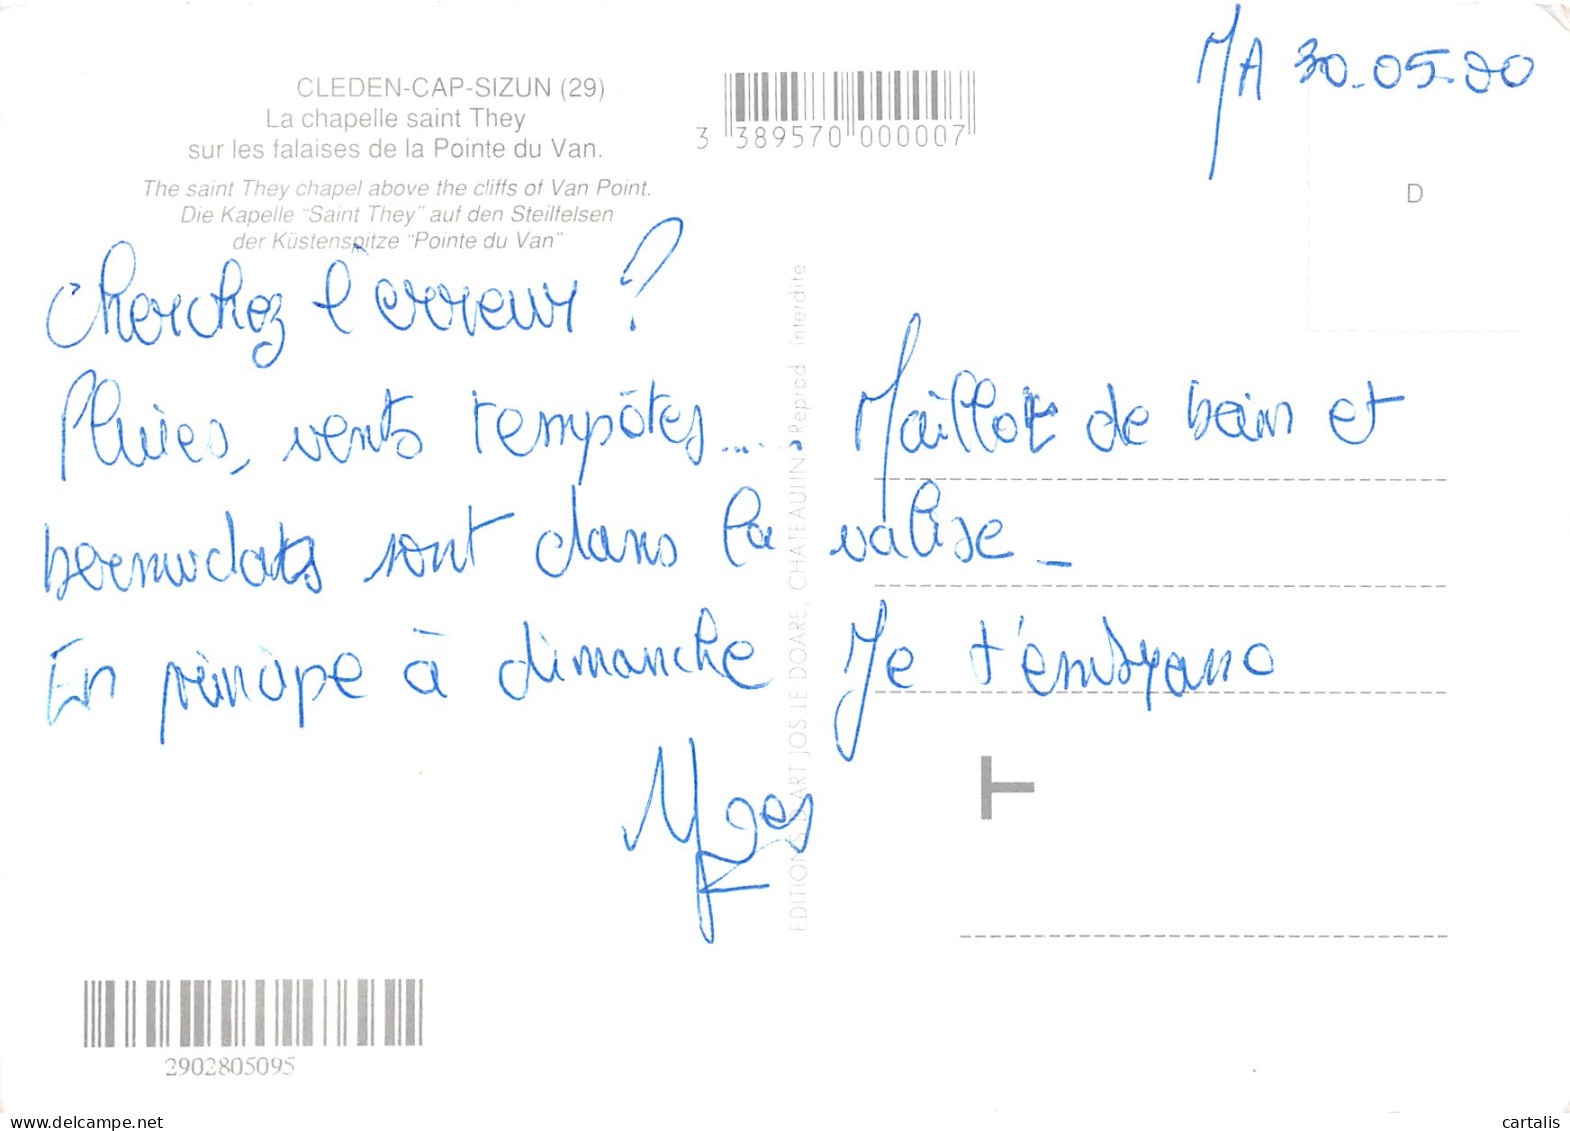 MA 30-05-00
CLEDEN-CAP-SIZUN (29)
La chapelle saint They
sur les falaises de la Pointe du Van.
The saint They chapel above the cliffs of Van Point.
Die Kapelle "Saint They" auf den Steilfelsen
der Küstenspitze "Pointe du Van"
3 389570 000007
D
Cherchez l'erreur ?
Pluies, vents tempôtes..... Maillot de bain et
bermudats sont dans la valise_
En principe à dimanche Je t'embrasse
EDITIONS D'ART JOS LE DOARE, CHATEAULIN Reprod interdite
T
2902805095
cartalis